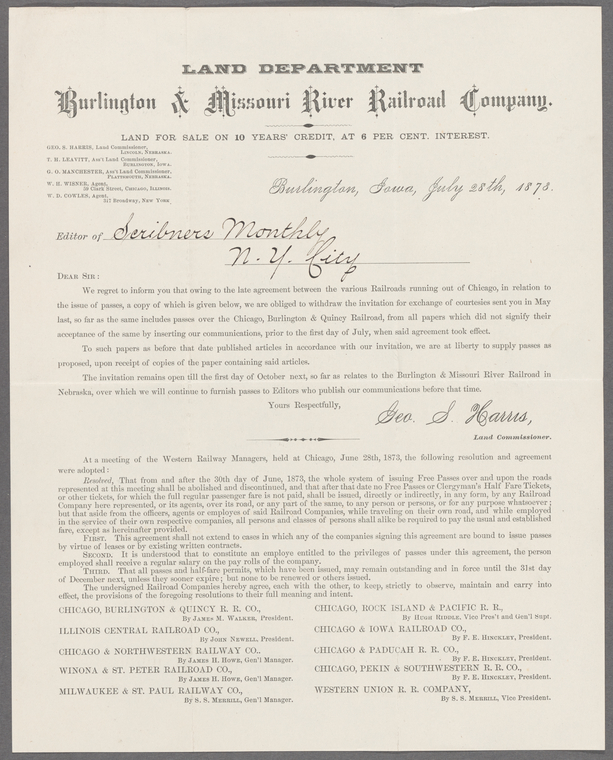 LAND DEPARTMENT
Burlington & Missouri River Railroad Company.
LAND FOR SALE ON 10 YEARS' CREDIT, AT 6 PER CENT. INTEREST.
GEO. S. HARRIS, Land Commissioner,
LINCOLN, NEBRASKA.
T. H. LEAVITT, Ass't Land Commissioner,
BURLINGTON, IOWA.
G. O. MANCHESTER, Ass't Land Commissioner,
PLATTSMOUTH, NEBRASKA.
W. H. WISNER, Agent,
59 Clark Street, CHICAGO, ILLINOIS.
W. D. COWLES, Agent,
517 Broadway, NEW YORK
Burlington, Iowa, July 28th, 1873.
Editor of Scribners Monthly
N. Y. City
DEAR SIR:
We regret to inform you that owing to the late agreement between the various Railroads running out of Chicago, in relation
to the issue of passes, a copy of which is given below, we are obliged to withdraw the invitation for exchange of courtesies sent you in May
last, so far as the same includes passes over the Chicago, Burlington & Quincy Railroad, from all papers which did not signify their
acceptance of the same by inserting our communications, prior to the first day of July, when said agreement took effect.
To such papers as before that date published articles in accordance with our invitation, we are at liberty to supply passes as
proposed, upon receipt of copies of the paper containing said articles.
The invitation remains open till the first day of October next, so far as relates to the Burlington & Missouri River Railroad in
Nebraska, over which we will continue to furnish passes to Editors who publish our communications before that time.
Yours Respectfully,
Geo. S. Harris,
Land Commissioner.
At a meeting of the Western Railway Managers, held at Chicago, June 28th, 1873, the following resolution and agreement
were adopted:
Resolved, That from and after the 30th day of June, 1873, the whole system of issuing Free Passes over and upon the roads
represented at this meeting shall be abolished and discontinued, and that after that date no Free Passes or Clergyman's Half Fare Tickets,
or other tickets, for which the full regular passenger fare is not paid, shall be issued, directly or indirectly, in any form, by any Railroad
Company here represented, or its agents, over its road, or any part of the same, to any person or persons, or for any purpose whatsoever;
but that aside from the officers, agents or employes of said Railroad Companies, while traveling on their own road, and while employed
in the service of their own respective companies, all persons and classes of persons shall alike be required to pay the usual and established
fare, except as hereinafter provided.
FIRST. This agreement shall not extend to cases in which any of the companies signing this agreement are bound to issue passes
by virtue of leases or by existing written contracts.
SECOND. It is understood that to constitute an employe entitled to the privileges of passes under this agreement, the person
employed shall receive a regular salary on the pay rolls of the company.
THIRD. That all passes and half-fare permits, which have been issued, may remain outstanding and in force until the 31st day
of December next, unless they sooner expire; but none to be renewed or others issued.
The undersigned Railroad Companies hereby agree, each with the other, to keep, strictly to observe, maintain and carry into
effect, the provisions of the foregoing resolutions to their full meaning and intent.
CHICAGO, BURLINGTON & QUINCY R. R. CO.,
By JAMES M. WALKER, President.
ILLINOIS CENTRAL RAILROAD CO.,
By JOHN NEWELL, President.
CHICAGO & NORTHWESTERN RAILWAY CO.,
By JAMES H. HOWE, Gen'l Manager.
WINONA & ST. PETER RAILROAD CO.,
By JAMES H. HOWE, Gen'l Manager.
MILWAUKEE & ST. PAUL RAILWAY CO.,
By S. S. MERRILL, Gen'l Manager.
CHICAGO, ROCK ISLAND & PACIFIC R. R.,
By HUGH RIDDLE, Vice Pres't and Gen'l Supt.
CHICAGO & IOWA RAILROAD CO.,
By F. E. HINCKLEY, President.
CHICAGO & PADUCAH R. R. CO.,
By F. E. HINCKLEY, President.
CHICAGO, PEKIN & SOUTHWESTERN R. R. CO.,
By F. E. HINCKLEY, President.
WESTERN UNION R. R. COMPANY,
By S. S. MERRILL, Vice President.